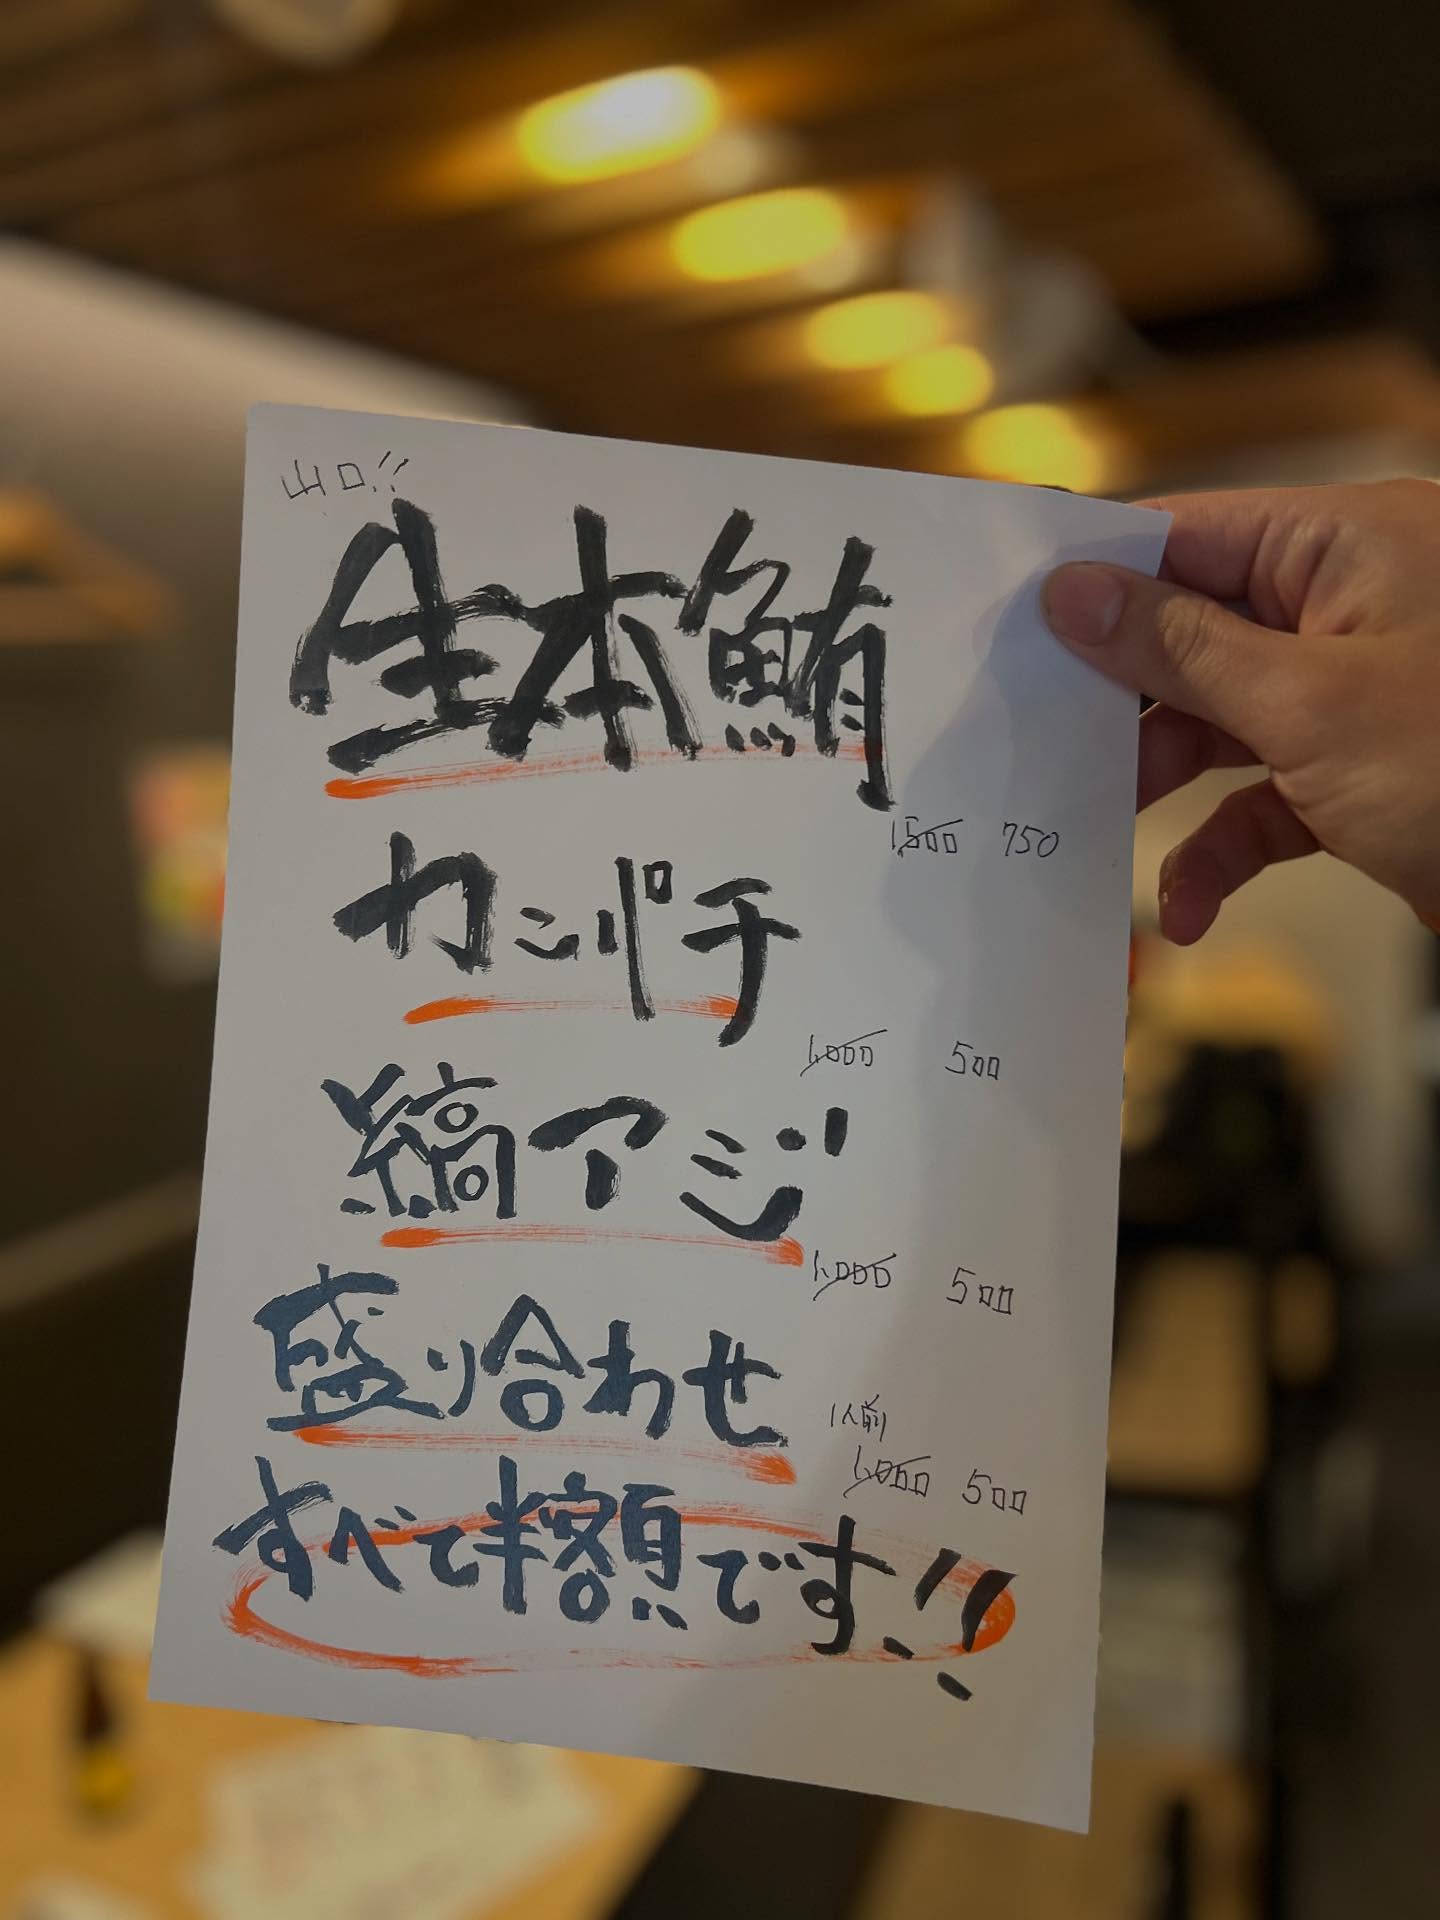 山口!!
生本鮪
1,500 750
カンパチ
1,000 500
縞アジ
1,000 500
盛り合わせ
1人前
1,000 500
すべて半額です!!